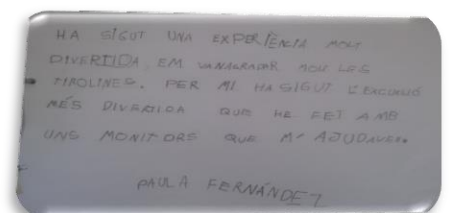 HA SIGUT UNA EXPERIÈNCIA MOLT
DIVERTIDA, EM VAN AGRADAR MOLT LES
TIROLINES. PER MI HA SIGUT L'EXCURSIÓ
MÉS DIVERTIDA QUE HE FET AMB
UNS MONITORS QUE M'AJUDAVEN.
PAULA FERNÁNDEZ